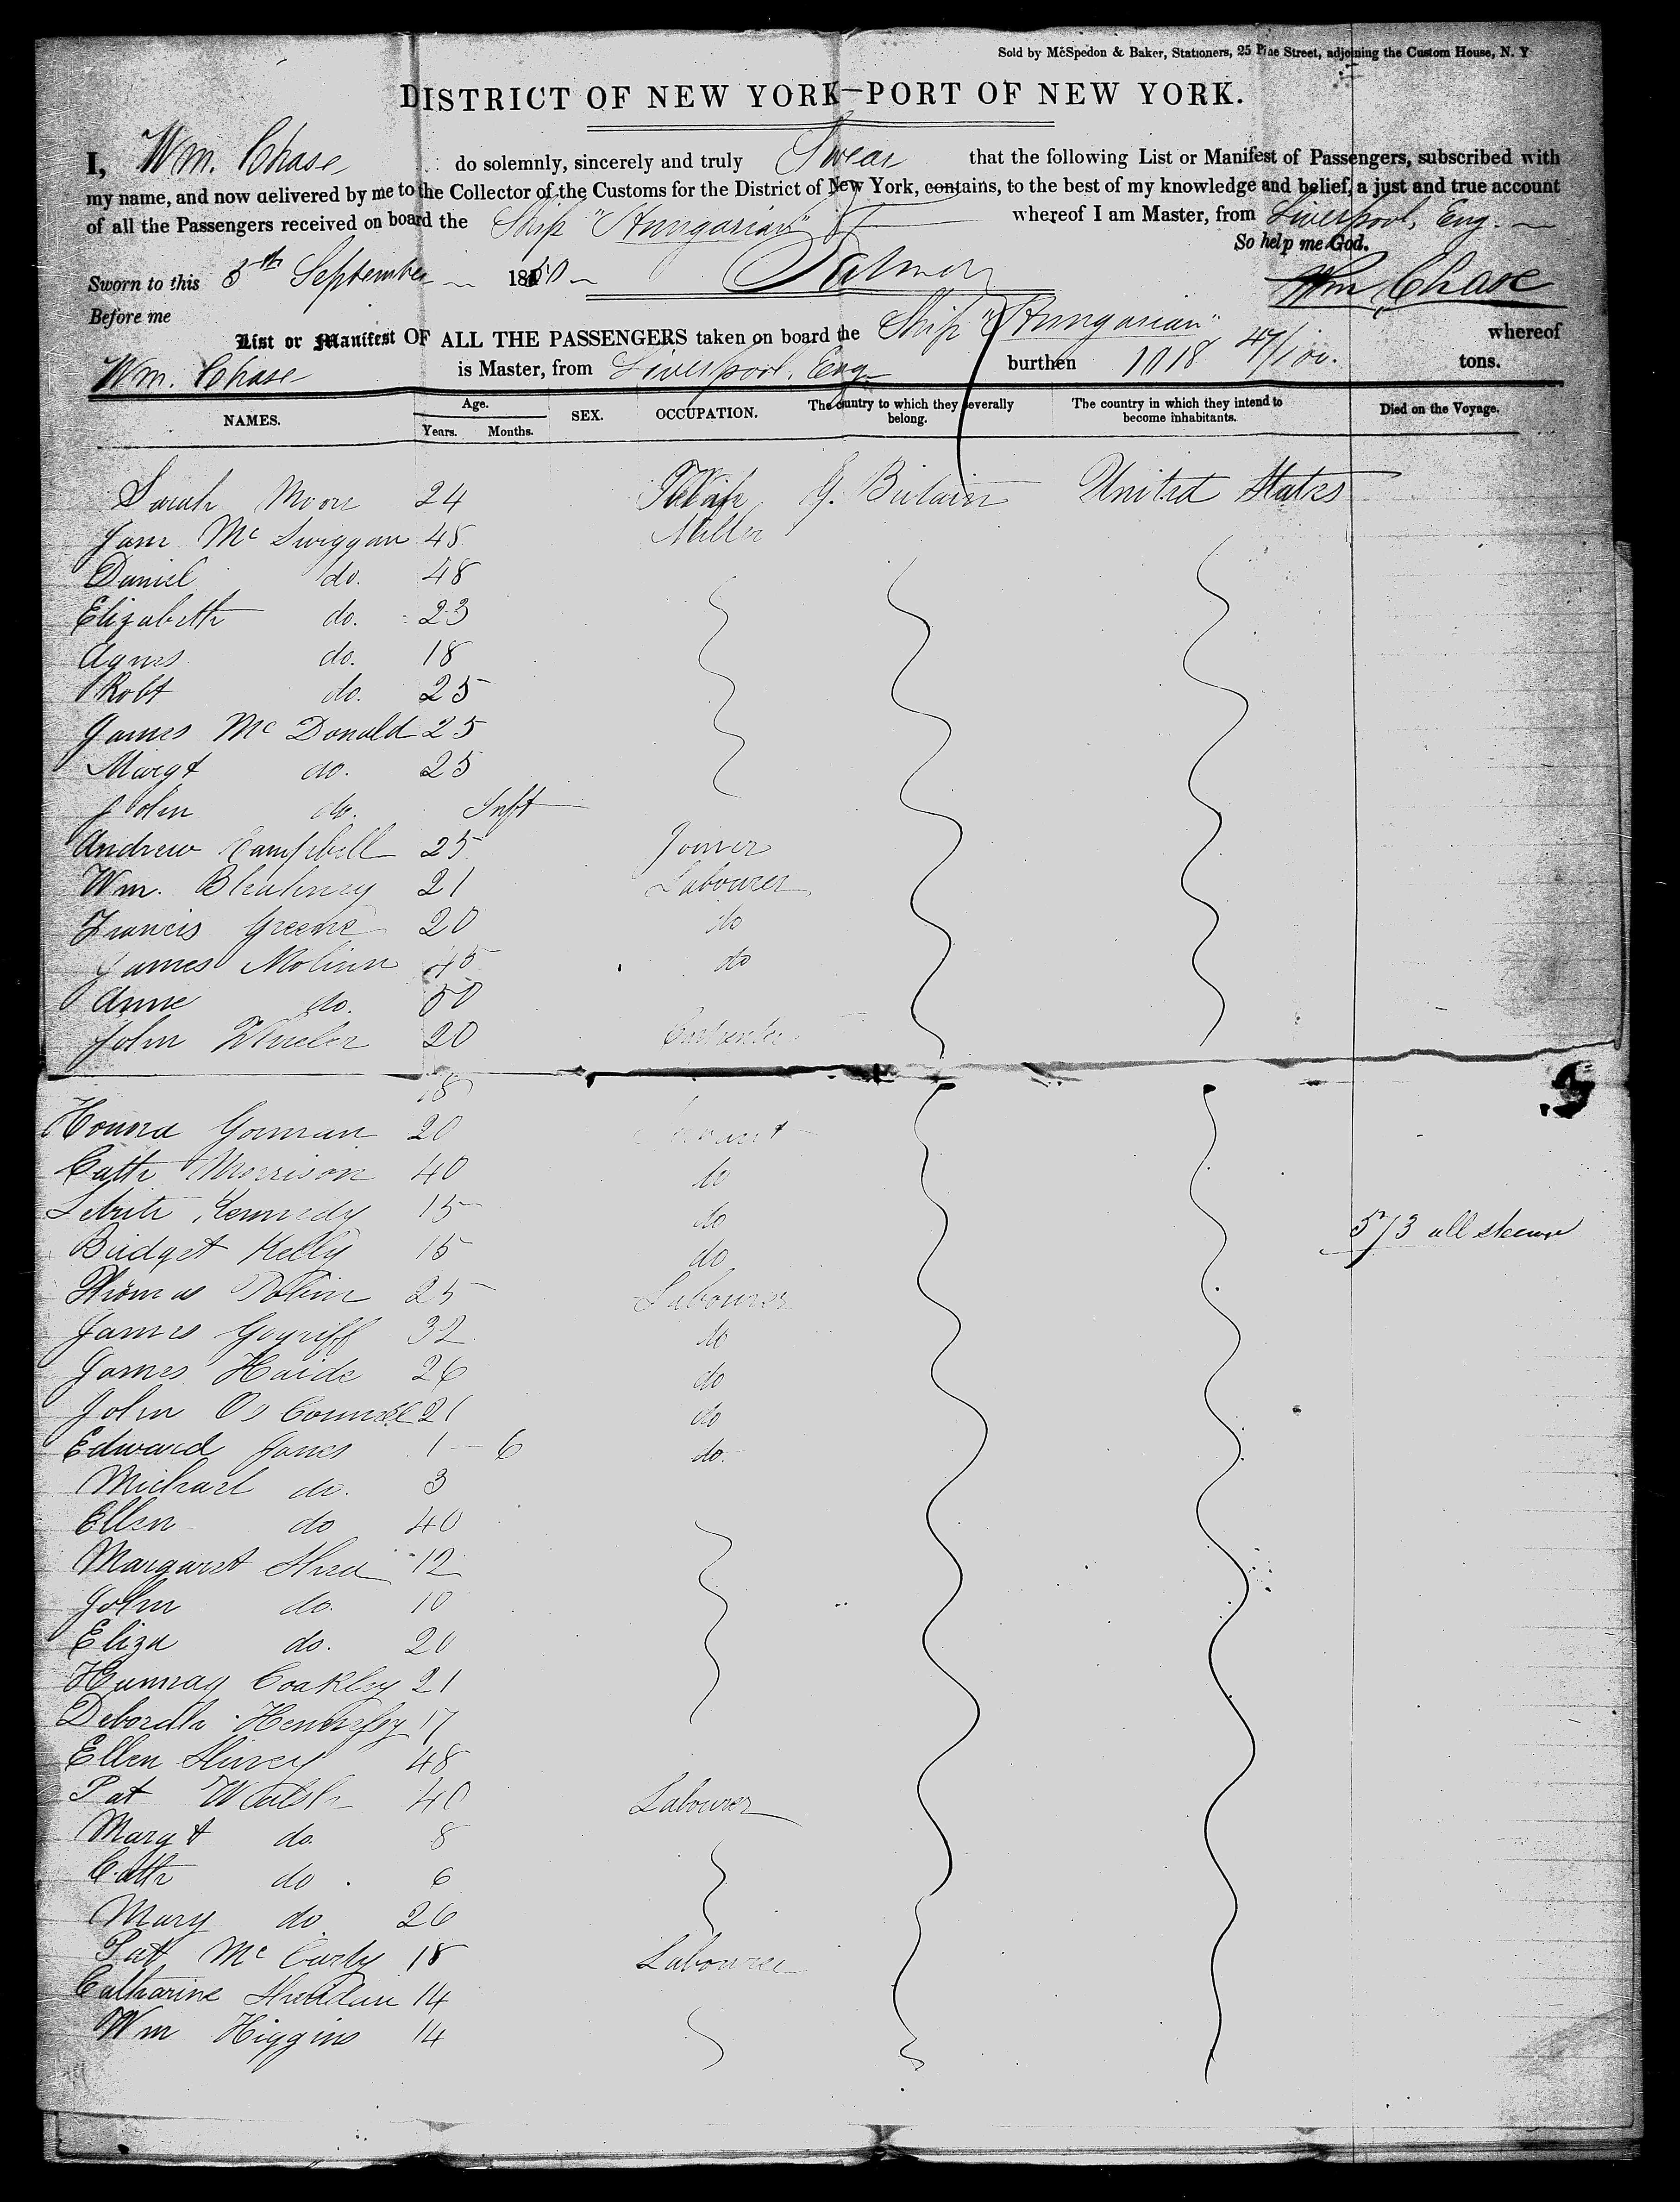 Sold by McSpedon & Baker, Stationers, 25 Pine Street, adjoining the Custom House, N. Y
DISTRICT OF NEW YORK—PORT OF NEW YORK.
I, Wm. Chase do solemnly, sincerely and truly Swear that the following List or Manifest of Passengers, subscribed with
my name, and now delivered by me to the Collector of the Customs for the District of New York, contains, to the best of my knowledge and belief, a just and true account
of all the Passengers received on board the Ship "Hungarian" whereof I am Master, from Liverpool, Eng.
So help me God.
Sworn to this 5th September 1850 Wm Chase
Before me
List or Manifest OF ALL THE PASSENGERS taken on board the Ship "Hungarian" whereof
Wm. Chase is Master, from Liverpool, Eng burthen 1018 47/100. tons.
NAMES. Age. Years. Months. SEX. OCCUPATION. The country to which they severally belong. The country in which they intend to become inhabitants. Died on the Voyage.
Sarah Moore 24 G. Britain United States
Jane Mc Swiggan 45 Miller
Daniel do. 48
Elizabeth do. 23
Agnes do. 18
Robt do. 25
James Mc Donald 25
Margt do. 25
John do. Inft
Andrew Campbell 25 Joiner
Wm. Bleakney 21 Labourer
Francis Greene 20 do
James 45 do
Anne do. 50
John Wheeler 20 Carpenter
18
Honora Gorman 20 Servant
Cath Morrison 40 do
Kennedy 15 do
Bridget Kelly 15 do
Thomas Tobin 25 Labourer
James 32 do
James Haide 26 do
John Os Connell 21 do
Edward Jones 1 6 do.
Michael do. 3
Ellen do 40
Margaret Shea 12
John do. 10
Eliza do. 20
Coakley 21
Deborah Hennesey 17
Ellen 48
Pat Walsh 40 Labourer
Margt do. 8
Cath do 6
Mary do 26
Pat Mc Carty 18 Labourer
Catharine Sheridan 14
Wm Higgins 14
573 all